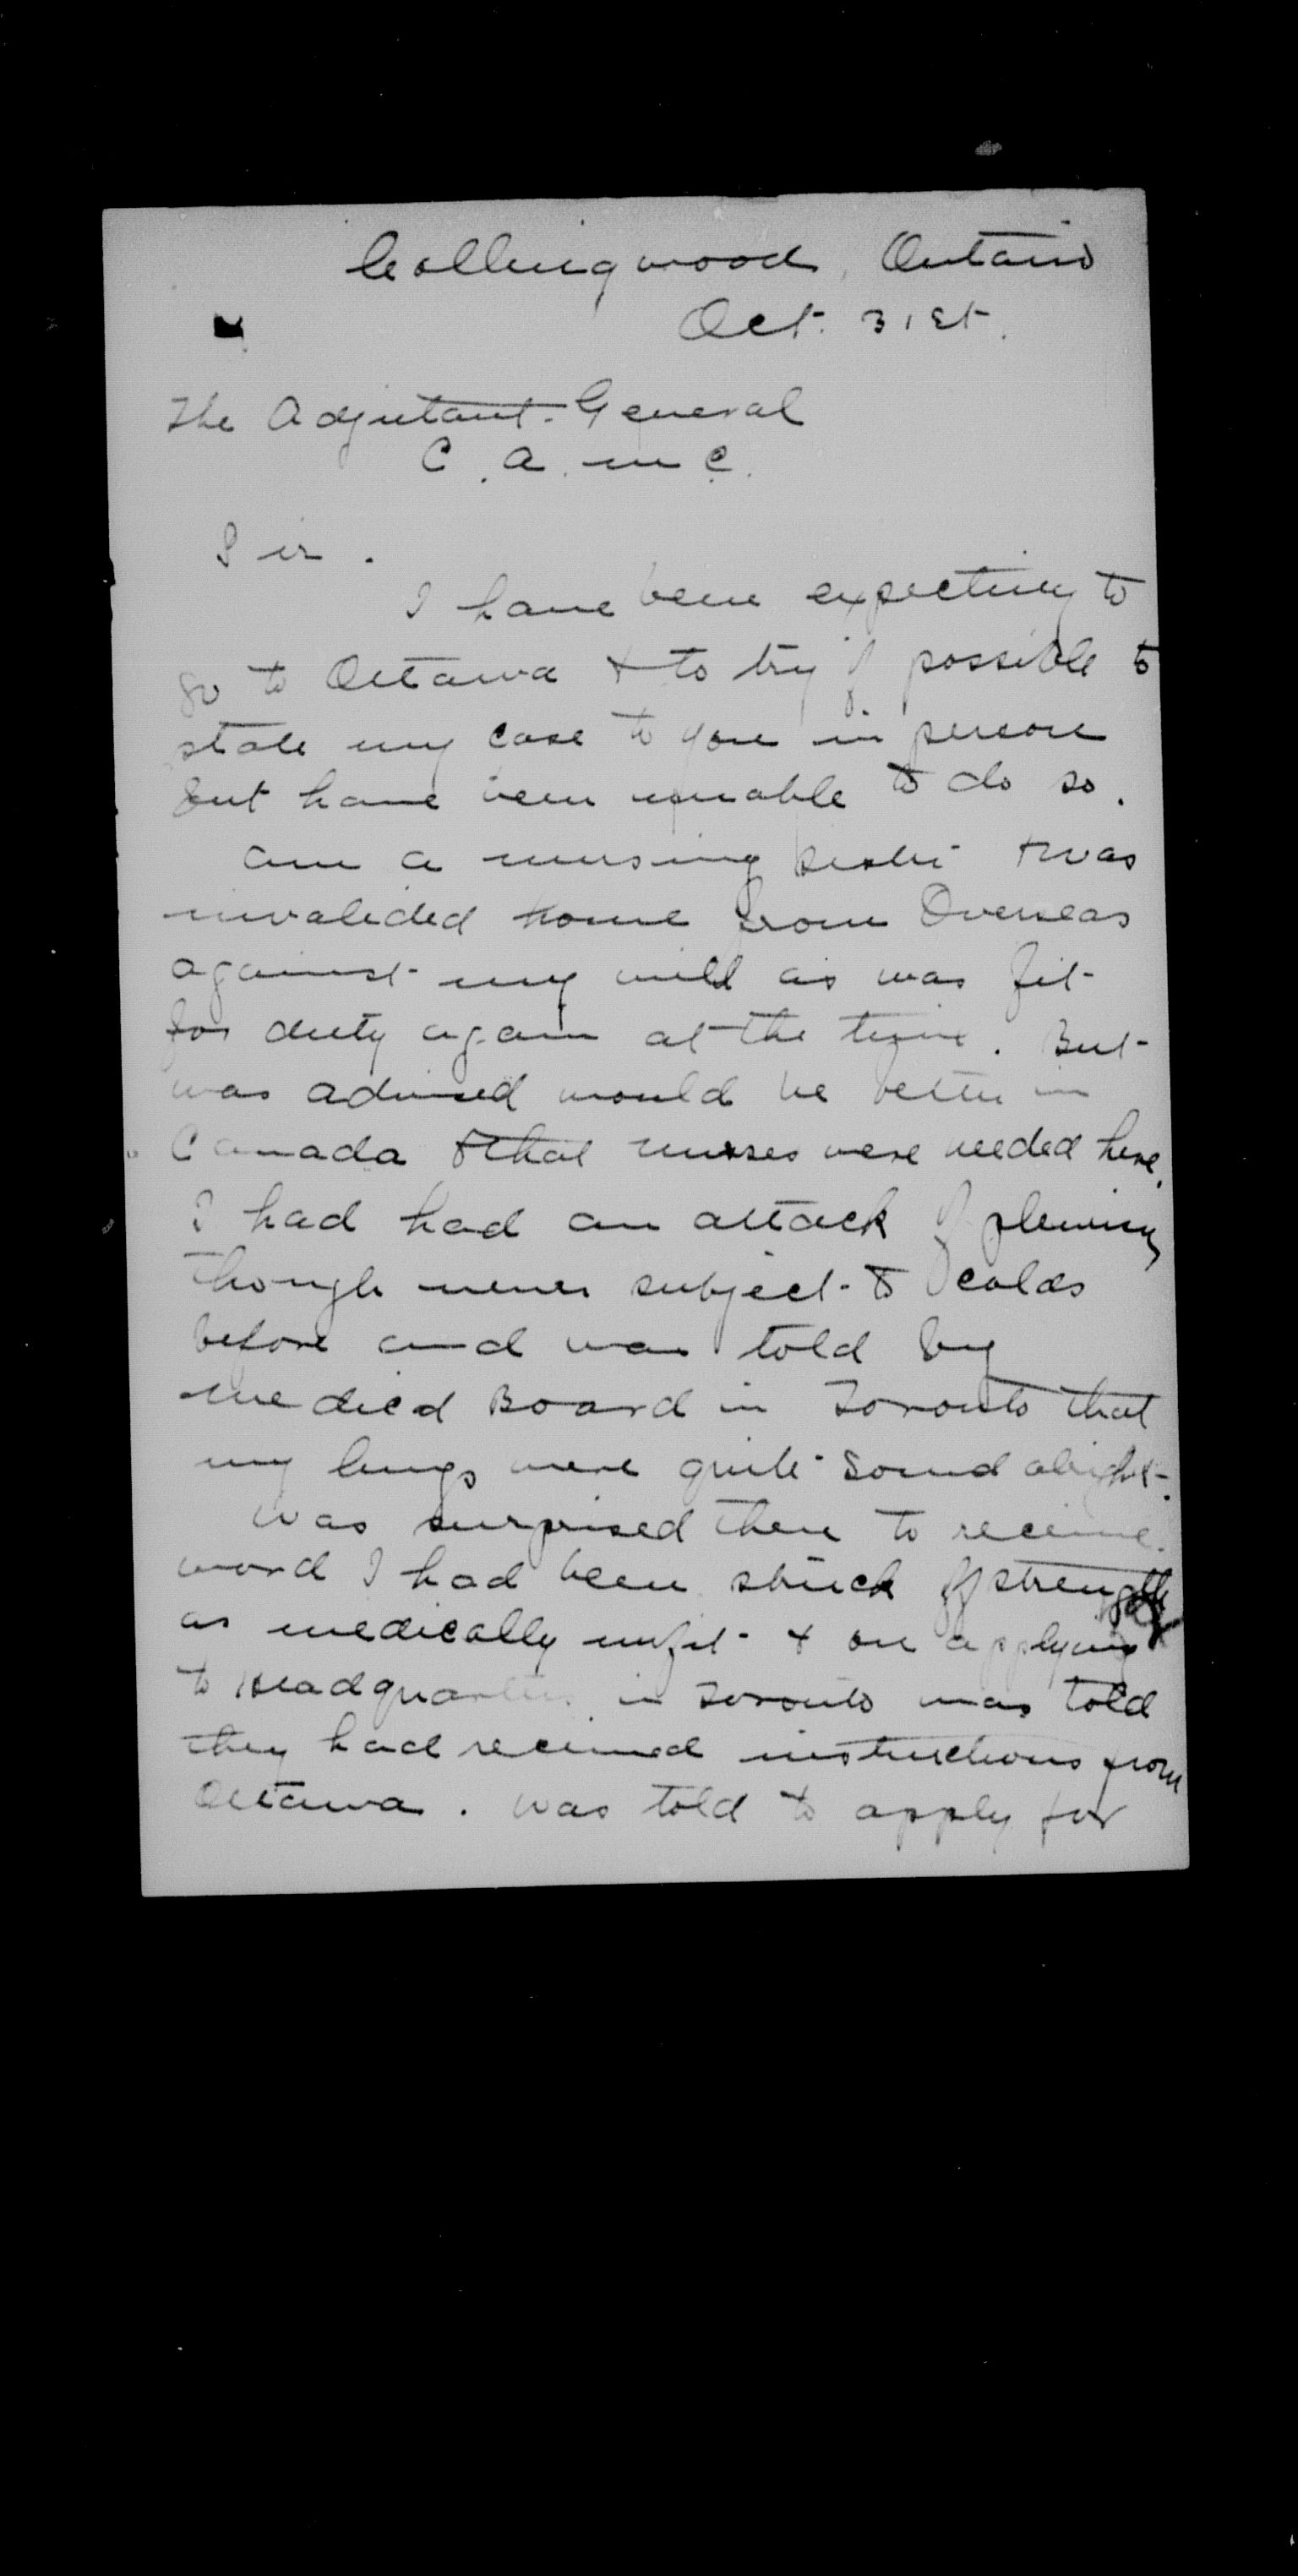 Collingwood, Ontario
Oct. 31st.
The Adjutant-General
C.A.M.C.
Sir.
I have been expecting to
go to Ottawa & to try if possible to
state my case to you in person
but have been unable to do so.
Am a nursing sister & was
invalided home from Overseas
against my will as was fit
for duty again at the time. But
was advised would be better in
Canada & that nurses were needed here.
I had had an attack of pleurisy
though never subject to colds
before and was told by
medical Board in Toronto that
my lungs were quite sound alright.
Was surprised then to receive
word I had been struck off strength
as medically unfit & on applying
to Headquarters in Toronto was told
they had received instructions from
Ottawa. Was told to apply for